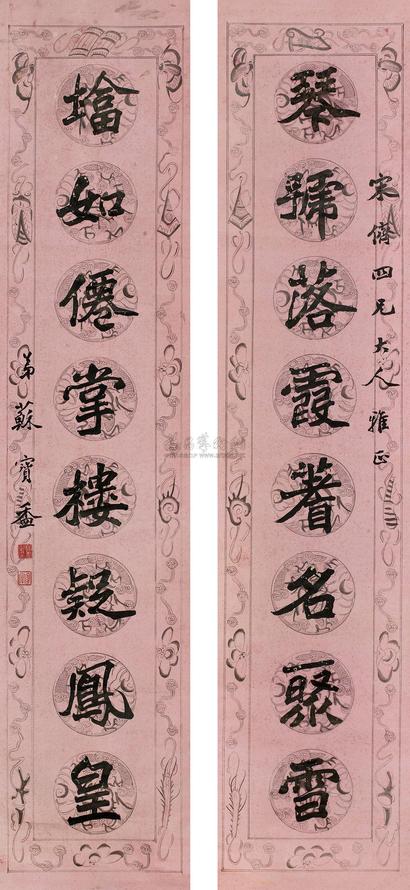 宋儕四兄大人雅正
琴號落霞著名聚雪
墖如僊掌樓疑鳳皇
弟蘇寶盉